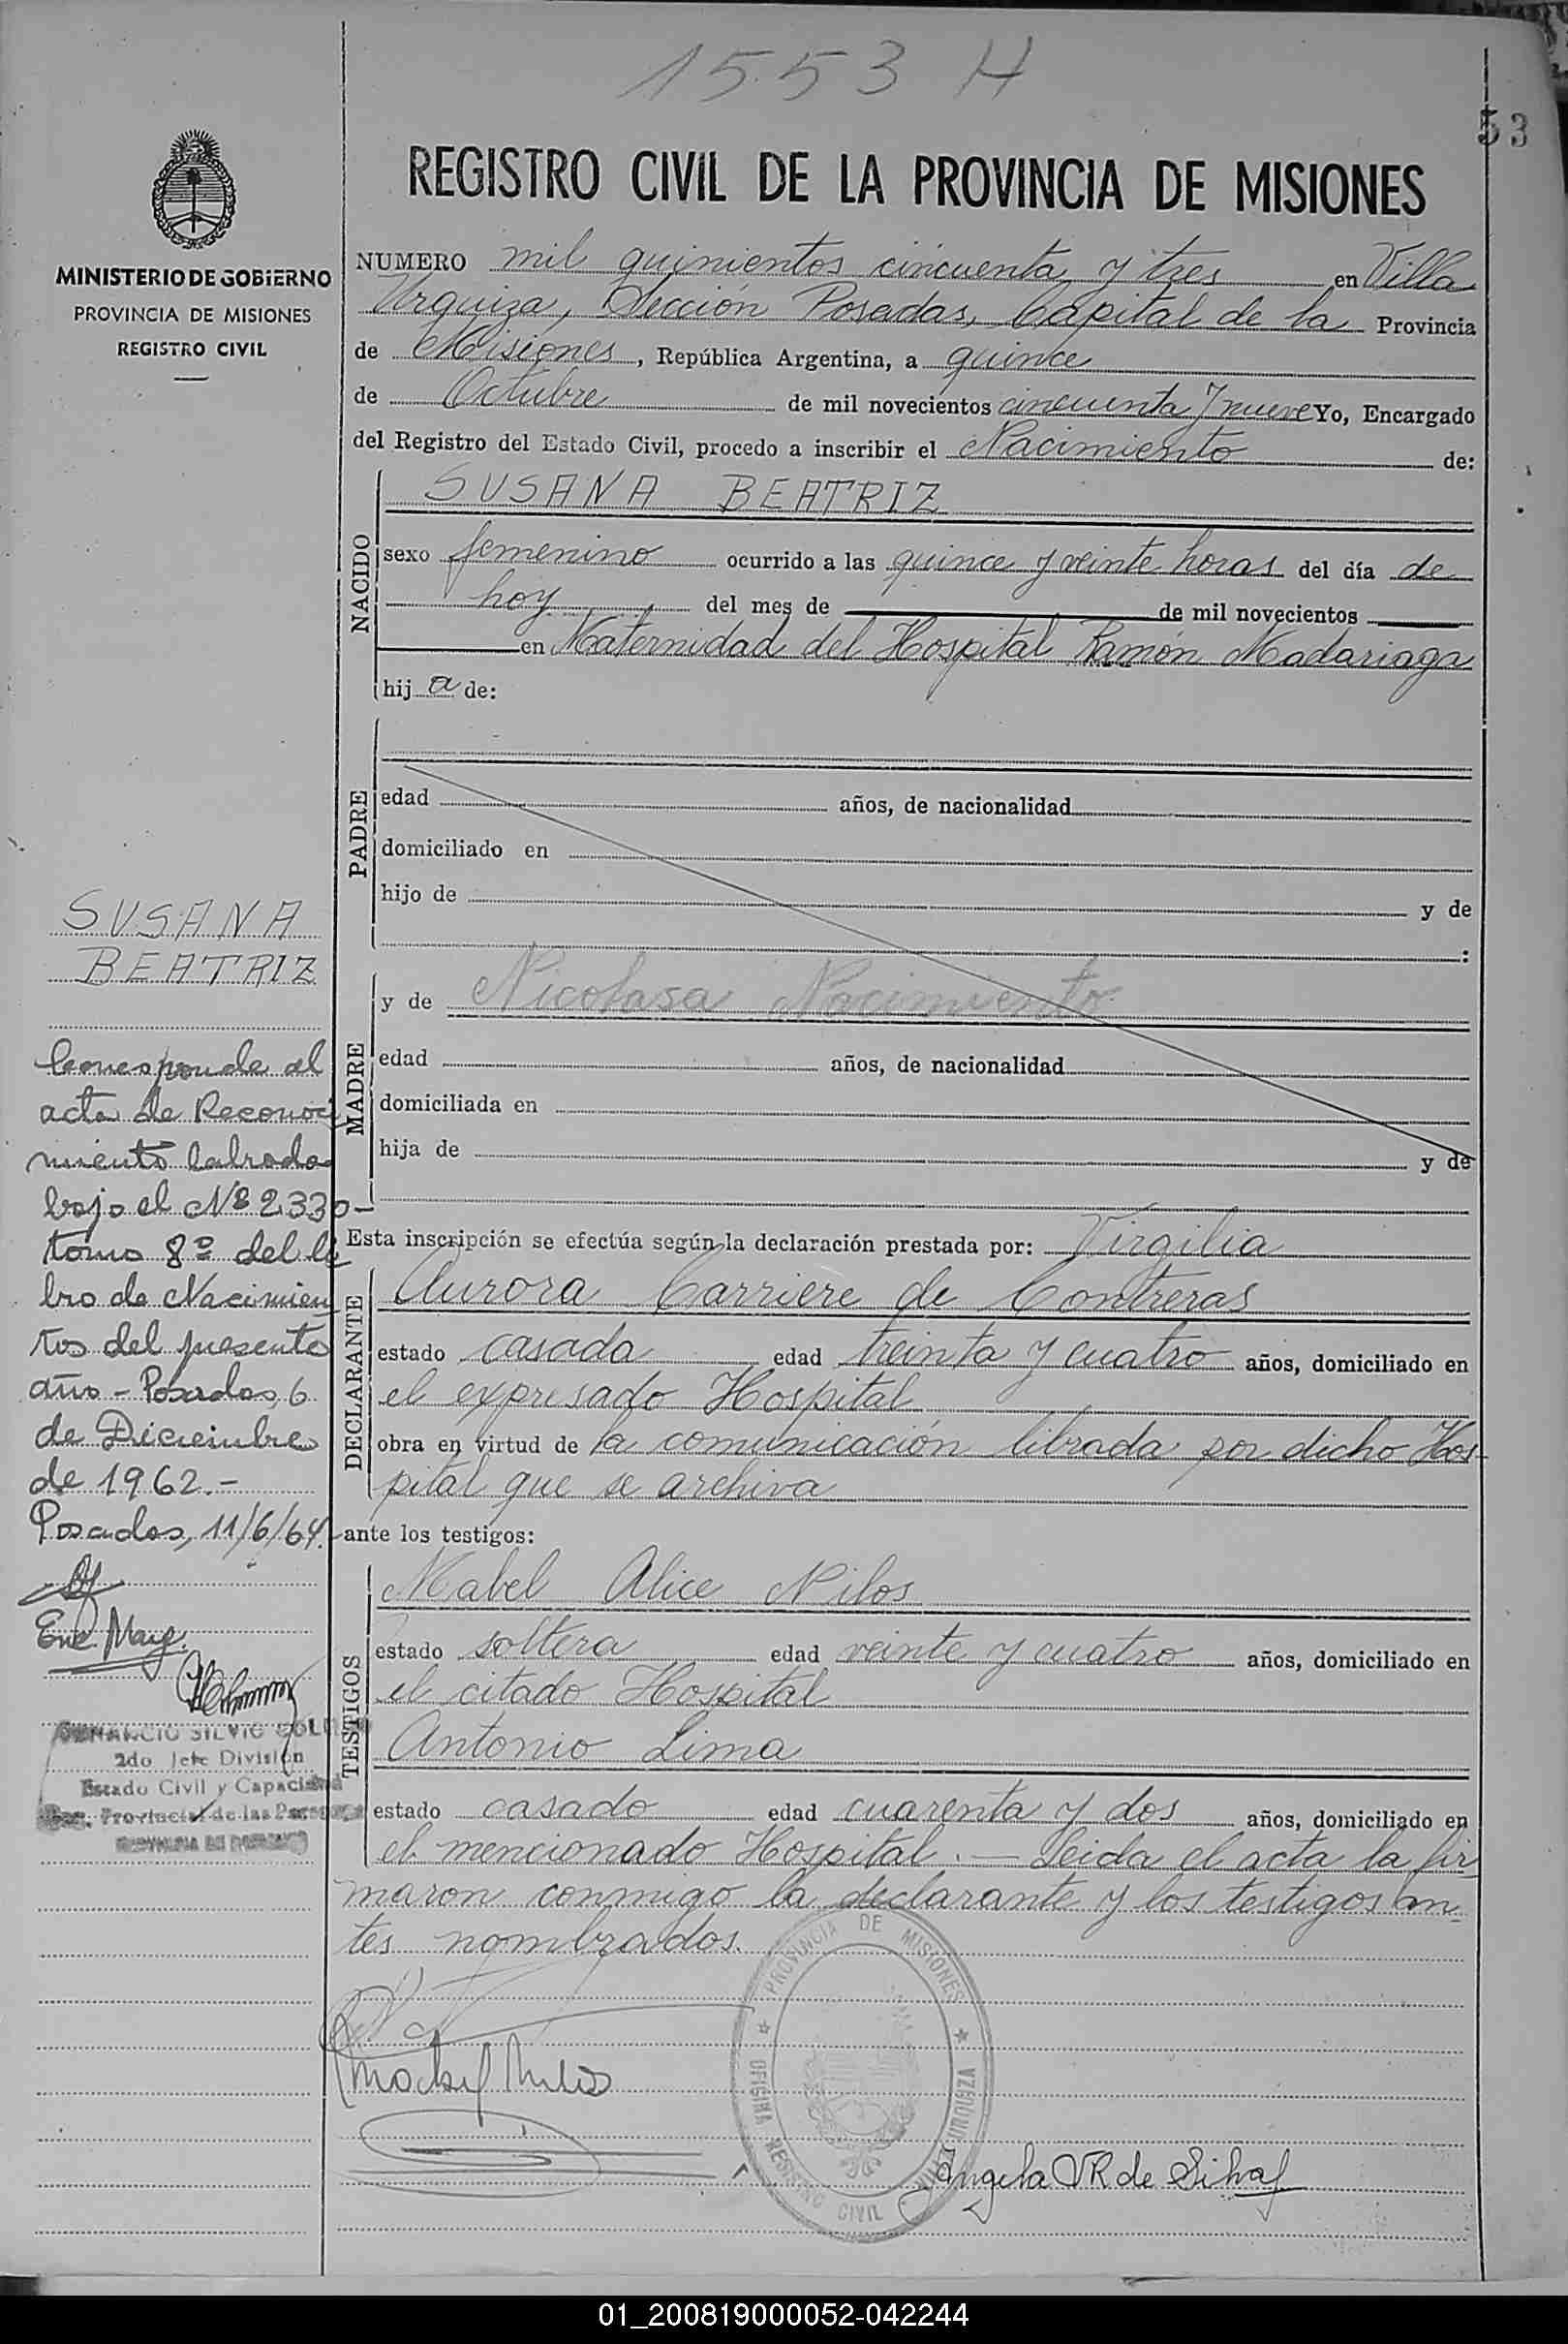 1553 H
53
REGISTRO CIVIL DE LA PROVINCIA DE MISIONES
MINISTERIO DE GOBIERNO
PROVINCIA DE MISIONES
REGISTRO CIVIL
NUMERO mil quinientos cincuenta y tres en Villa
Urquiza, Sección Posadas, Capital de la Provincia
de Misiones, República Argentina, a quince
de Octubre de mil novecientos cincuenta y nueve Yo, Encargado
del Registro del Estado Civil, procedo a inscribir el Nacimiento de:
NACIDO
SUSANA BEATRIZ
sexo femenino ocurrido a las quince y veinte horas del día de
hoy del mes de de mil novecientos
en Maternidad del Hospital Ramón Madariaga
hij a de:
PADRE
edad años, de nacionalidad
domiciliado en
hijo de y de
:
MADRE
y de Nicolasa Nacimiento
edad años, de nacionalidad
domiciliada en
hija de y de
Esta inscripción se efectúa según la declaración prestada por: Virgilia
DECLARANTE
Aurora Carriere de Contreras
estado casada edad treinta y cuatro años, domiciliado en
el expresado Hospital
obra en virtud de la comunicación librada por dicho Hos-
pital que se archiva
ante los testigos:
TESTIGOS
Mabel Alice Nilos
estado soltera edad veinte y cuatro años, domiciliado en
el citado Hospital
Antonio Lima
estado casado edad cuarenta y dos años, domiciliado en
el mencionado Hospital. — Leida el acta la fir
maron conmigo la declarante y los testigos an-
tes nombrados.
SUSANA
BEATRIZ
Corresponde al
acta de Reconoci
miento labrada
bajo el Nº 2.330-
tomo 8º del li
bro de Nacimien
tos del presente
año - Posadas, 6
de Diciembre
de 1962.-
Posadas, 11/6/64.
SILVIO
2do Jefe División
Estado Civil y Capacidad
Provincial de las Personas
PROVINCIA DE MISIONES
VILLA URQUIZA
OFICINA REGISTRO CIVIL
Angela VR de Silva
01_200819000052-042244